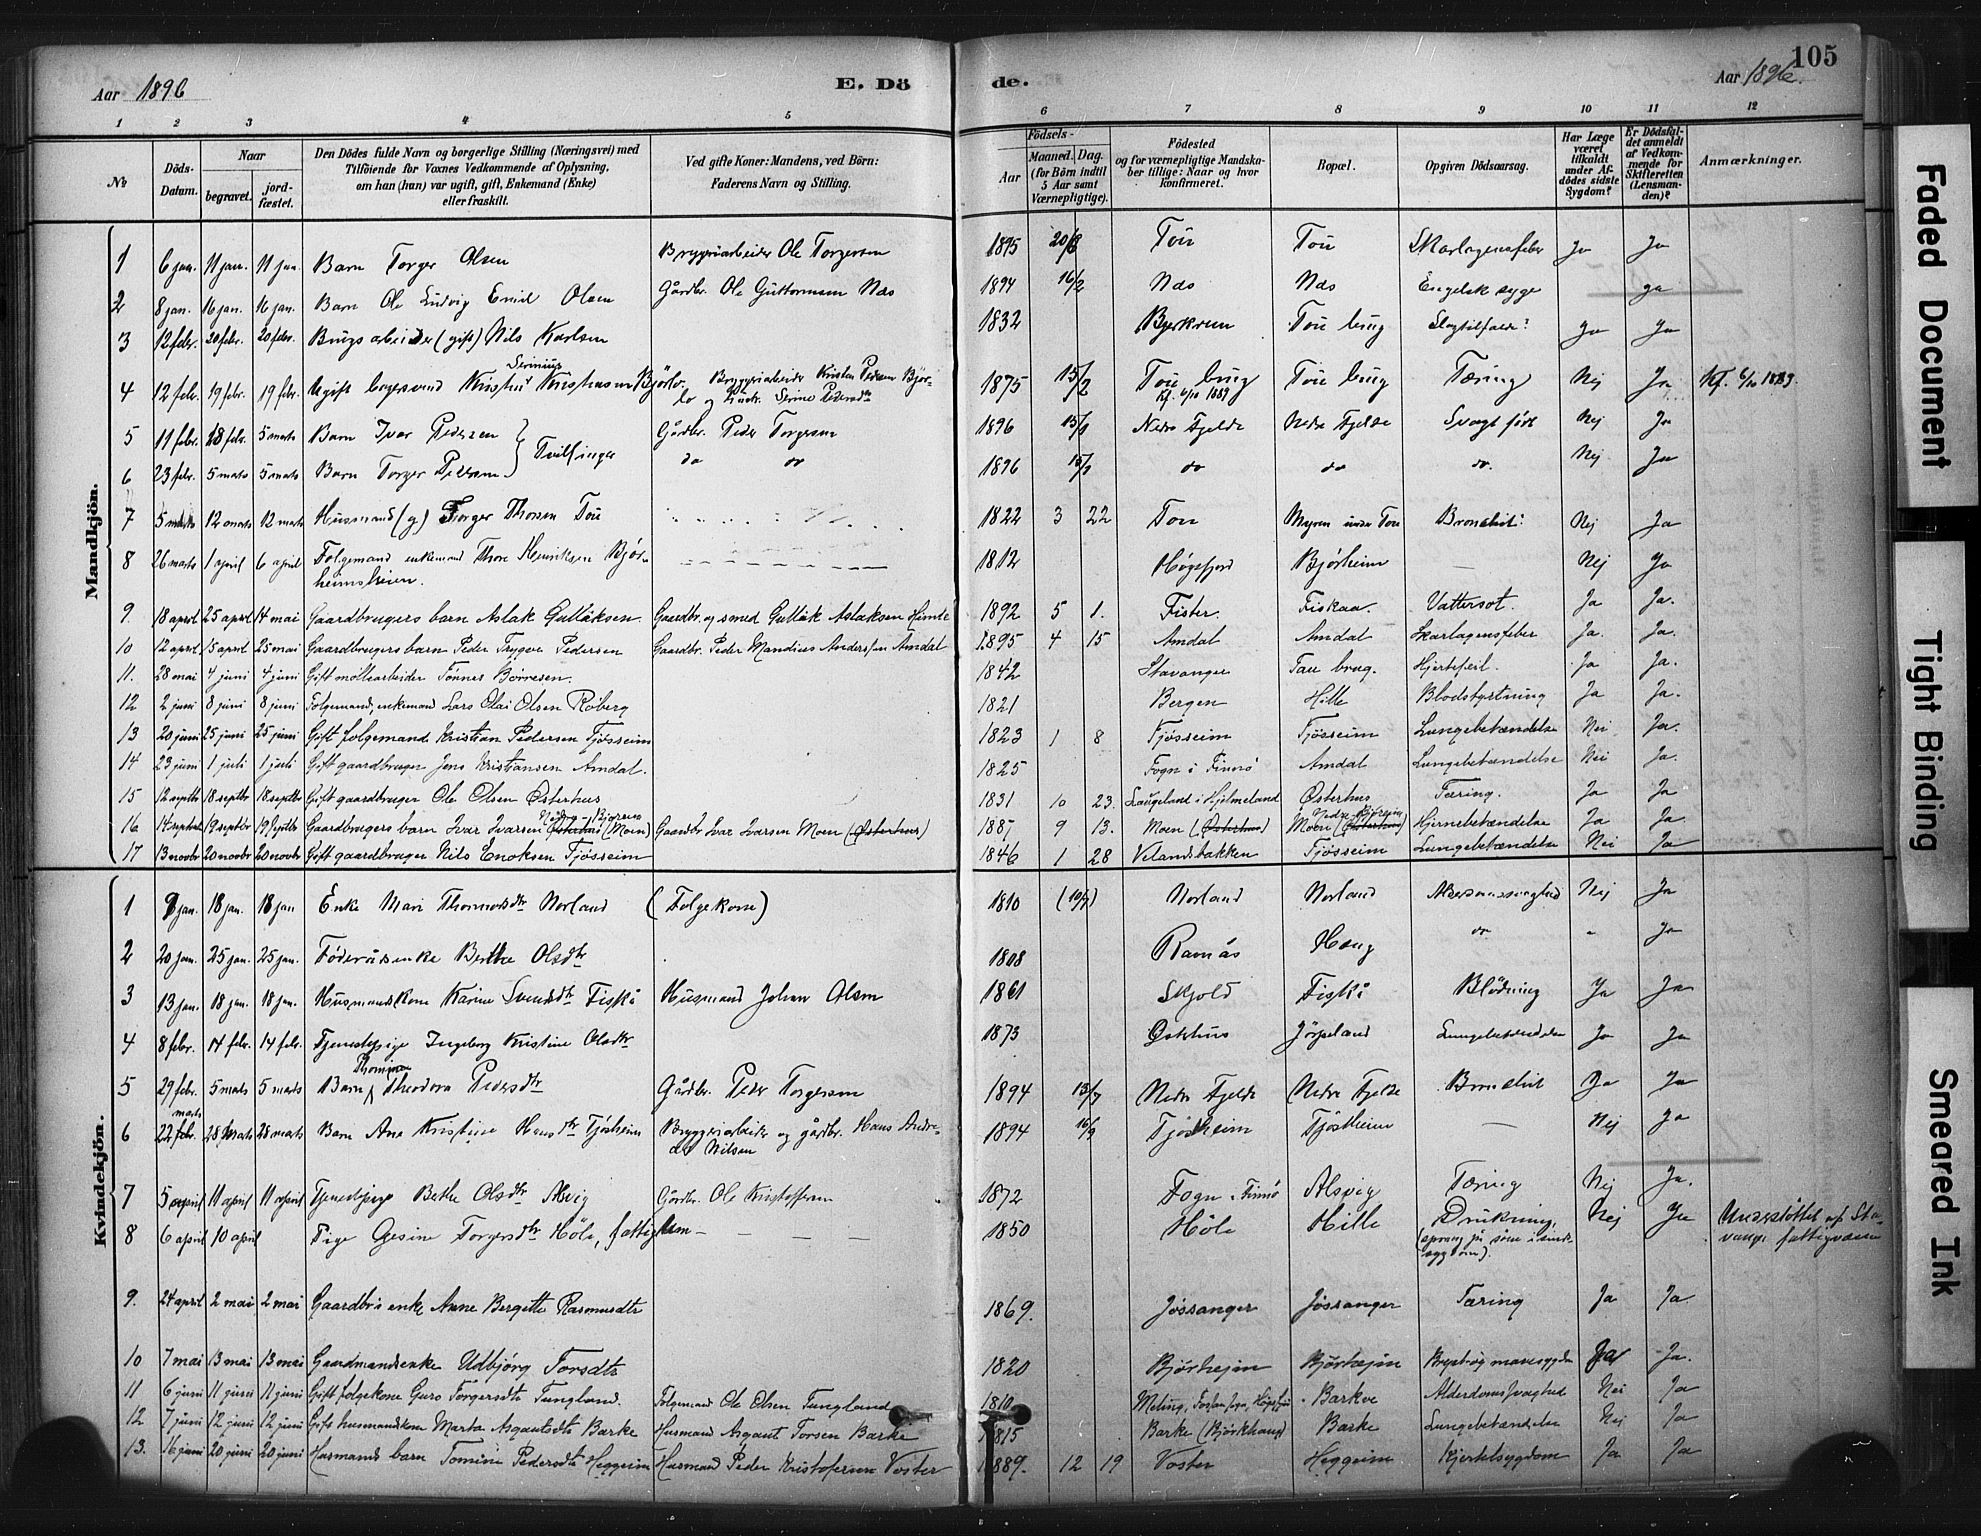 105
Aar 1896
E. Dö de.
Aar 1896.
1 2 3 4 5 6 7 8 9 10 11 12
№
Döds-Datum.
Naar
begravet.
jord-fæstet.
Den Dödes fulde Navn og borgerlige Stilling (Næringsvei) med
Tilföiende for Voxnes Vedkommende af Oplysning,
om han (hun) var ugift, gift, Enkemand (Enke)
eller fraskilt.
Ved gifte Koner: Mandens, ved Börn:
Faderens Navn og Stilling.
Födsels-
Aar
Maaned. Dag.
(for Börn indtil
5 Aar samt
Værnepligtige).
Födested
og for værnepligtige Mandska-
ber tillige: Naar og hvor
konfirmeret.
Bopæl.
Opgiven Dödsaarsag.
Har Læge
været
tilkaldt
under Af-
dödes sidste
Sygdom?
Er Dödsfal-
det anmeldt
af Vedkom-
mende for
Skifteretten
(Lensman-
den)?
Anmærkninger.
Mandkjön.
1 6 jan. 11 jan. 11 jan. Barn Torger Olsen Bryggeriarbeider Ole Torgersen 1895 20/8 Tou Tou Skarlagensfeber Ja Ja
2 8 jan. 16 jan. 16 jan. Barn Ole Ludvig Emil Olsen Gårdbr. Ole Guttormsen Nås 1894 16/2 Nås Nås Engelsk syge ja
3 12 febr. 20 febr. 20 febr. Brugsarbeider (gift) Nils Karlsen 1832 Bjerkreim Tou brug Slagtilfælde? Ja Ja
4 12 febr. 19 febr. 19 febr. Ugift bagersvend Kristian Severinius Kristensen Bjørlo Bryggeriarbeider Kristen Pedersen Bjør-
lo og hustr. Serine Pedersdtr 1875 15/2 Tou brug Tou brug Tæring Nej Ja Kf. 6/10 1889.
Kf. 6/10 1889
5 11 febr. 28 febr. 5 marts Barn Ivar Pedersen } Tvillinger Gårdbr. Peder Torgersen 1896 15/1 Nedre Fjelde Nedre Fjelde Svagt født Nej Ja
6 23 febr. 5 marts 5 marts Barn Torger Pedersen do do 1896 15/1 do do do. Nej Ja
7 5 marts 12 marts 12 marts Husmand (g) Torger Thorsen Tou 1822 3 22 Tou Myren under Tou Bronchit: Nej Ja
8 26 marts 1 april 6 april Folgemand enkemand Thore Henriksen Bjør-
heimsheien. 1812 Høgsfjord Bjørheim — Nej Ja
9. 18 april 25 april 14 mai Gaardbrugers barn Aslak Gulläksen. Gaardbr. og smed Gulläk Aslaksen Himle 1892 5 1. Fister. Fiskaa. Vattersot. Ja Ja.
10 12 april 15 april 25 mai Gaardbrugers barn Peder Trygve Pedersen Gaardbr. Peder Mandius Anderssen Amdal 1895 4 15 Amdal Amdal Skarlagensfeber Ja. Ja.
11. 28 mai 4 juni 4 juni Gift møllearbeider Tönnes Börresen. 1842 Stavanger Tau brug. Hjertefeil. Ja Ja.
12 2 juni 8 juni 8 juni Folgemand, enkemand Lars Olai Olsen Röberg 1821 Bergen Hille Blodstyrtning Ja Ja.
13 20 juni 25 juni 25 juni Gift folgemand Kristian Pedersen Tjösseim 1823 1 8 Tjösseim Tjösseim Lungebetændelse Nei Ja.
14 23 juni 1 juli 1 juli Gift gaardbruger Jens Kristiansen Amdal. 1825 Fogn i Finnö Amdal Lungebetændelse Nei Ja.
15 12 septbr 18 septbr 18 septbr Gift gaardbruger Ole Olsen Østerhus 1831 10 23. Laugeland i Hjelmeland Østerhus Tæring. Ja Ja
16 14 septbr 19 septbr 19 septbr Gaardbrugers barn Ivar Ivarsen Østerhus (Moen) Gaardbr Ivar Ivarsen Moen (Østerhus) 1887 9 13. Moen (Østerhus) Moen (Østerhus) Hjernebetændelse Ja Ja.
17 13 novbr 20 novbr 20 novbr Gift gaardbruger Nils Enoksen Tjösseim 1846 1 28 Velandsbakken Tjösseim Lungebetændelse Nei Ja
Kvindekjön.
1 9 jan. 18 jan. 18 jan Enke Mari Thormodsdtr Norland (Folgekone) 1810 Norland Norland Alderdomssvaghed Nej Ja
2 20 jan. 25 jan. 25 jan. Föderådsenke Berthe Olsdtr 1808 Ramsås Haug do - Ja
3 13 jan. 18 jan. 18 jan. Husmandskone Karine Svendsdtr Fiskå Husmand Johan Olsen 1861 Skjold Fiskå Blödning Ja Ja
4 8 febr. 14 febr. 14 febr. Tjenestepige Ingeborg Kristine Olsdtr 1873 Østerhus Jörpeland Lungebetændelse Ja Ja
5 29 febr. 5 marts 5 marts Barn Thomine Theodora Pedersdtr Gårdbr. Peder Torgersen 1894 13/7 Nedre Fjelde Nedre Fjelde Bronchit Ja Ja
6 22 marts 28 marts 28 marts Barn Ane Kristine Hansdtr Tjösheim Bryggeriarbeider og gårdbr. Hans Andre-
as Nilsen 1894 16/9 Tjösheim Tjösheim — Nej Ja
7 5 april 11 april 11 april Tjenestepige Berthe Olsdtr Alsvig Gårdbr. Ole Kristoffersen 1872 Fogn i Finnö Alsvig Tæring Nej Ja.
8 6 april 10 april Pige Gesine Torgersdtr Höle, fattiglem 1850 Höle Hille Drukning, Nej Ja Understöttet af Sta-
(sprang på söen i sinds- vanger fattigvæsen
sygdom).
9. 24 april 2 mai 2 mai Gaardbr's enke Anne Bergitte Rasmusdtr 1869. Jössanger Jössanger Tæring Ja Ja.
10 7 mai 13 mai 13 mai Gaardmandsenke Udbjörg Torsdtr 1820 Björheim Björheim Bryst og mavesygdom Ja Ja.
11 6 juni 11 juni 11 juni Gift folgekone Guro Torgersdtr Tungland. Folgemand Ole Olsen Tungland 1810 Meling, Barkve Alderdomssvaghed Nei Ja
12 7 juni 12 juni 12 juni Gift husmandskone Marta Asgautsdtr Barke Husmand Asgaut Torsen Barke 1815 Barke (Björkhaug) Barke Lungebetændelse Nej Ja
13. 16 juni 20 juni 20 juni Husmands barn Tomine Pedersdtr Heggeim Husmand Peder Kristofersen Voster 1889. 12 19 Voster Heggeim Kjertelsygdom Ja Ja
Faded Document
Tight Binding
Smeared Ink